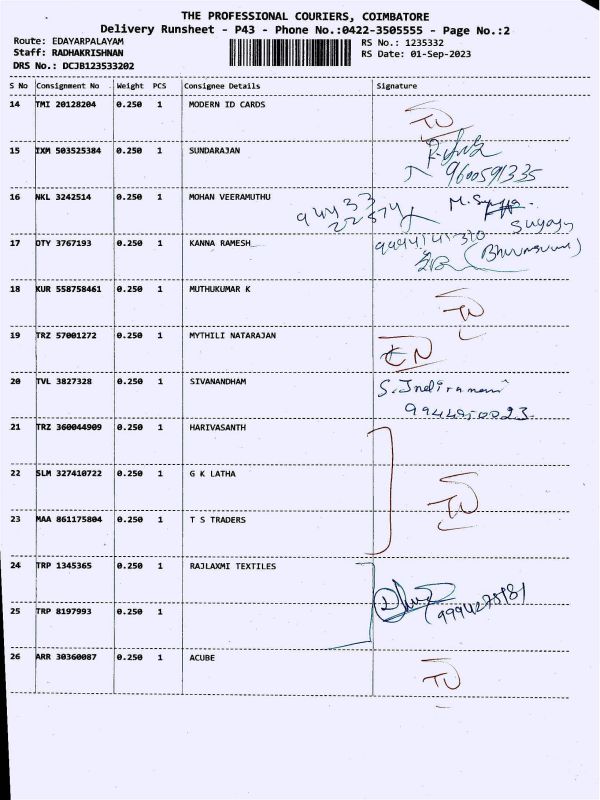 THE PROFESSIONAL COURIERS, COIMBATORE
Delivery Runsheet - P43 - Phone No.:0422-3505555 - Page No.:2
Route: EDAYARPALAYAM
Staff: RADHAKRISHNAN
DRS No.: DCJB123533202
RS No.: 1235332
RS Date: 01-Sep-2023
S No Consignment No Weight PCS Consignee Details Signature
14 TMI 20128204 0.250 1 MODERN ID CARDS
15 IXM 503525384 0.250 1 SUNDARAJAN
9600591335
16 NKL 3242514 0.250 1 MOHAN VEERAMUTHU
94433
22574
17 OTY 3767193 0.250 1 KANNA RAMESH
18 KUR 558758461 0.250 1 MUTHUKUMAR K
19 TRZ 57001272 0.250 1 MYTHILI NATARAJAN
20 TVL 3827328 0.250 1 SIVANANDHAM S. Indiramani
21 TRZ 360044909 0.250 1 HARIVASANTH
22 SLM 327410722 0.250 1 G K LATHA
23 MAA 861175804 0.250 1 T S TRADERS
24 TRP 1345365 0.250 1 RAJLAXMI TEXTILES
25 TRP 8197993 0.250 1
26 ARR 30360087 0.250 1 ACUBE